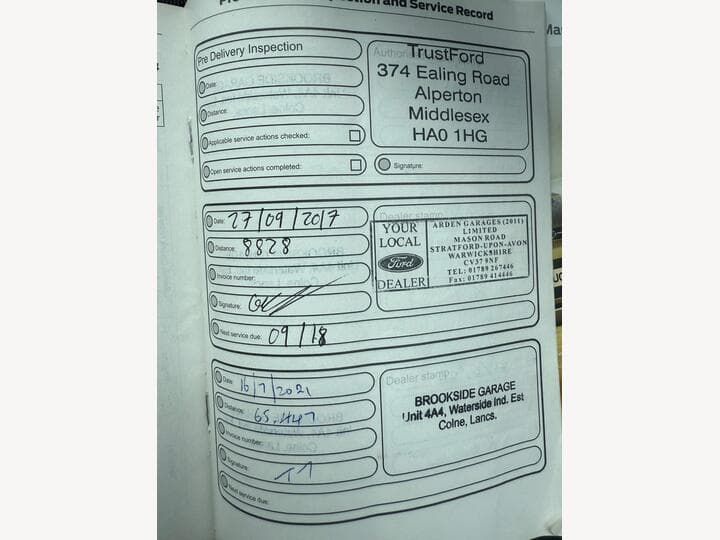 ection and Service Record
Pre Delivery Inspection
Date:
Distance:
Applicable service actions checked:
Open service actions completed:
TrustFord
374 Ealing Road
Alperton
Middlesex
HA0 1HG
Signature:
Date: 27/09/2017
Distance: 8828
Invoice number:
Signature:
Next service due: 09/18
Dealer stamp
YOUR
LOCAL
Ford
DEALER
ARDEN GARAGES (2011)
LIMITED
MASON ROAD
STRATFORD-UPON-AVON
WARWICKSHIRE
CV37 9NF
TEL: 01789 267446
Fax: 01789 414446
Date: 16/7/2021
Distance: 65.447
Invoice number:
Signature:
Next service due:
Dealer stamp
BROOKSIDE GARAGE
Unit 4A4, Waterside Ind. Est
Colne, Lancs.